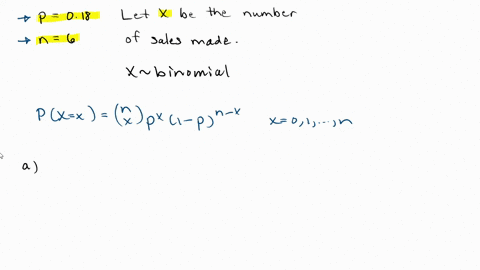 → p = 0.18 Let X be the number
→ n = 6 of sales made.
X ~ binomial
P(X=x) = (n x) p^x (1-p)^{n-x} x = 0, 1, ..., n
a)